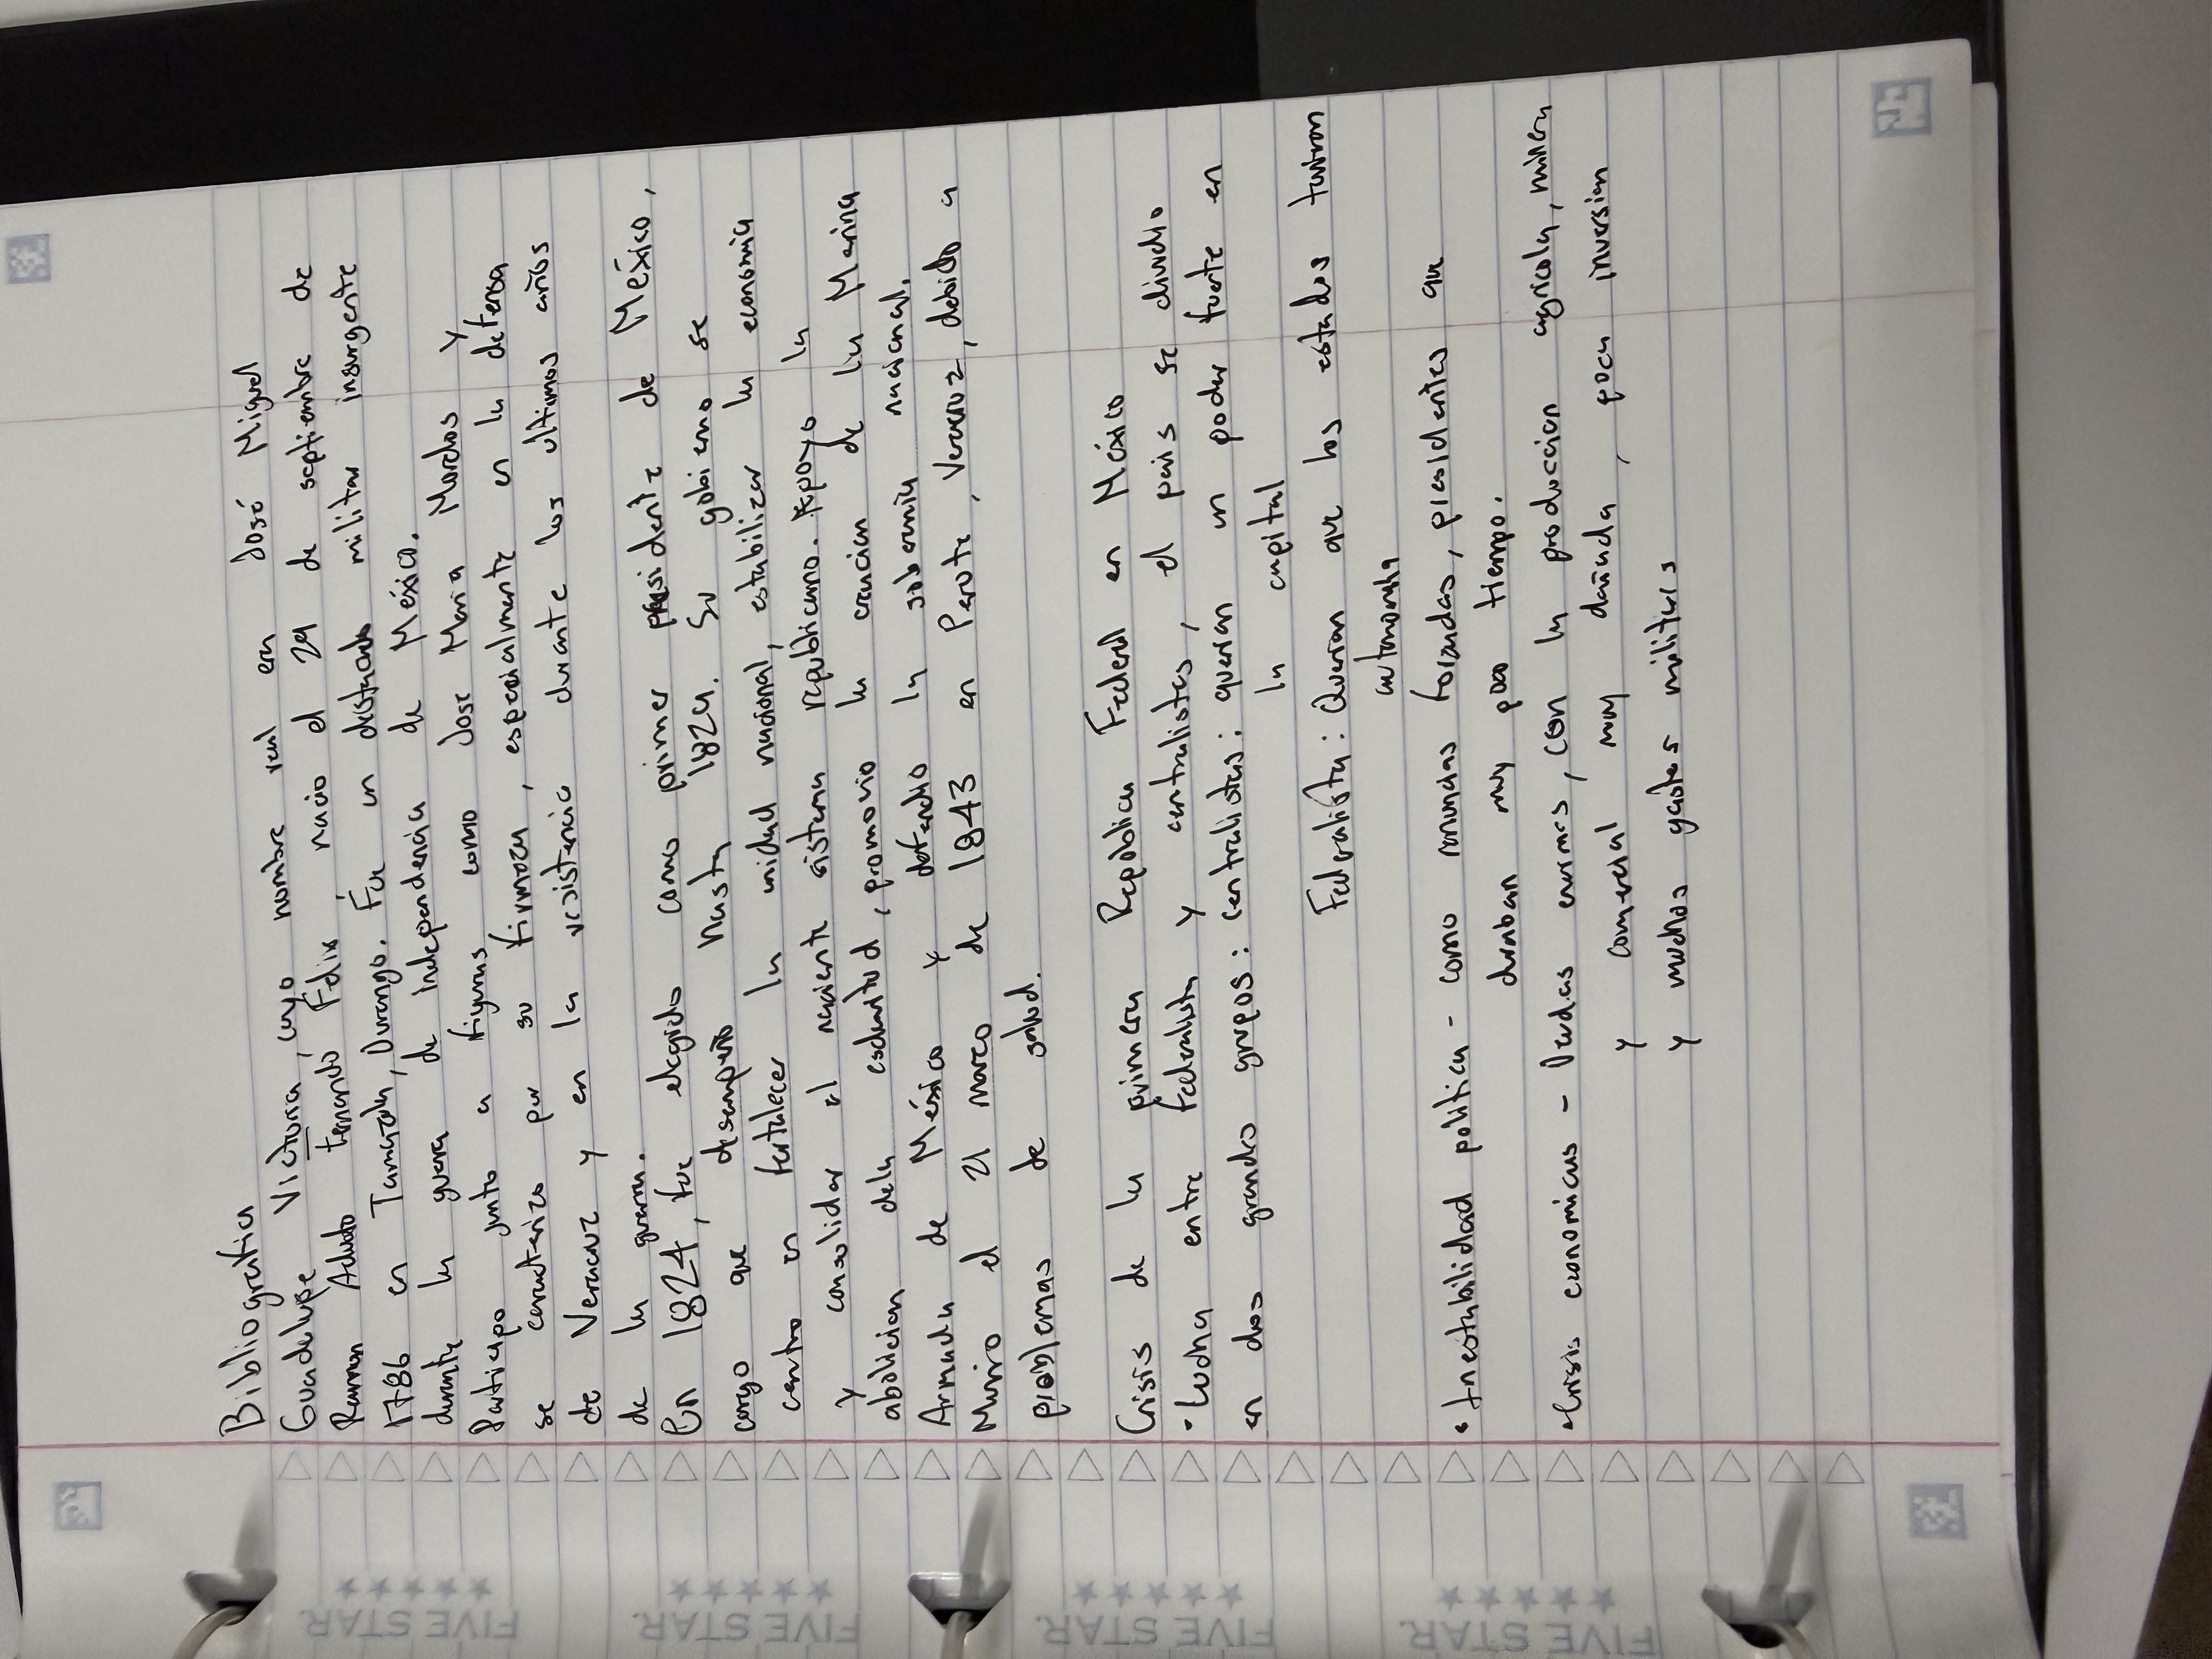 Bibliografica
Guadelupe Victoria, cuyo nombre real era José Miguel
Ramon Adudo Fernando Felix, nacio el 29 de septiembre de
1786 en Tamazula, Durango. Fue un destacado militar insurgente
durante la guerra de Independencia de México.
Participo junto a figuras como Jose Maria Morelos y
se caracterizo por su firmeza, especialmente en la defensa
de Veracruz y en la resistencia durante los ultimos años
de la guerra.
En 1824, fue elegido como primer presidente de México,
cargo que desempeño hasta 1829. Su gobierno se
centro en fortalecer la unidad nacional, estabilizar la economia
y consolidar el naciente sistema republicano. Apoyo la
abolicion dela esclavitud, promovio la creacion de la Marina
Armada de México y defendio la soberania nacional.
Murio el 21 marco de 1843 en Perote, Veracruz, debido a
problemas de salud.
Crisis de la primera Republica Federal en México
• Lucha entre federalista y centralistas, el pais se dividio
en dos grandes grupos: centralistas: querian un poder fuerte en
la capital
Federalista: Querian que los estados tuvieran
autonomia
• Inestabilidad politica - como mandos forzados, presidentes que
duraban muy poco tiempo.
• Crisis economicas - Deudas enormes, con la produccion agricola, minera
y comercial muy dañada, poca inversion
y muchos gastos militares
FIVE STAR.
FIVE STAR.
FIVE STAR.
FIVE STAR.